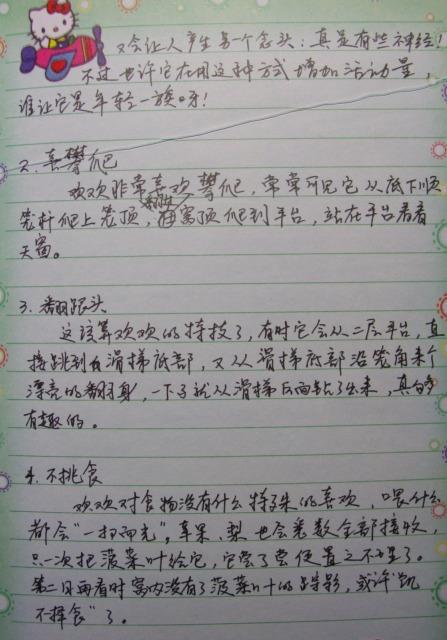 又会让人产生另一个念头：真是有些神经！
不过也许它在用这种方式增加活动量，
谁让它是年轻一族呀！
2. 喜攀爬
欢欢非常喜欢攀爬，常常可见它从底下顺
笼杆爬上笼顶，翻过窝顶爬到平台，站在平台看看
天窗。
3. 翻跟头
这该算欢欢的特技了，有时它会从二层平台，直
接跳到滑梯底部，又从滑梯底部沿笼角来个
漂亮的翻身，一下子就从滑梯后面钻了出来，真够
有趣的。
4. 不挑食
欢欢对食物没有什么特殊的喜欢，喂什么
都会“一扫而光”，苹果、梨也会悉数全部接收，
只一次把菠菜叶给它，它尝了尝便置之不理了。
第二日再看时窝内没有了菠菜叶的踪影，或许“饥
不择食”了。